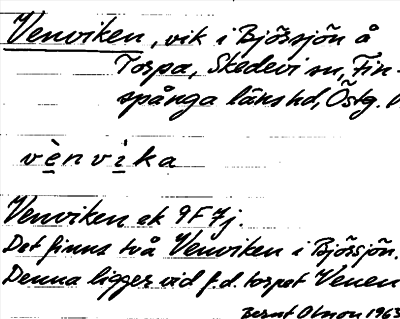 Venviken, vik i Björssjön å
Torpa, Skedevi sn, Fin-
spånga länshd, Östg.
vènvika
Venviken ek 9F7j.
Det finns två Venviken i Björssjön.
Denna ligger vid f.d. torpet Venen
Bernt Olsson 1963